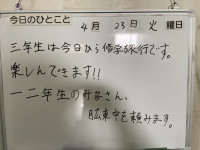 今日のひとこと
4月 23日 火 曜日
三年生は今日から修学旅行です。
楽しんできます!!
一二年生のみなさん、
広東中を頼みます。